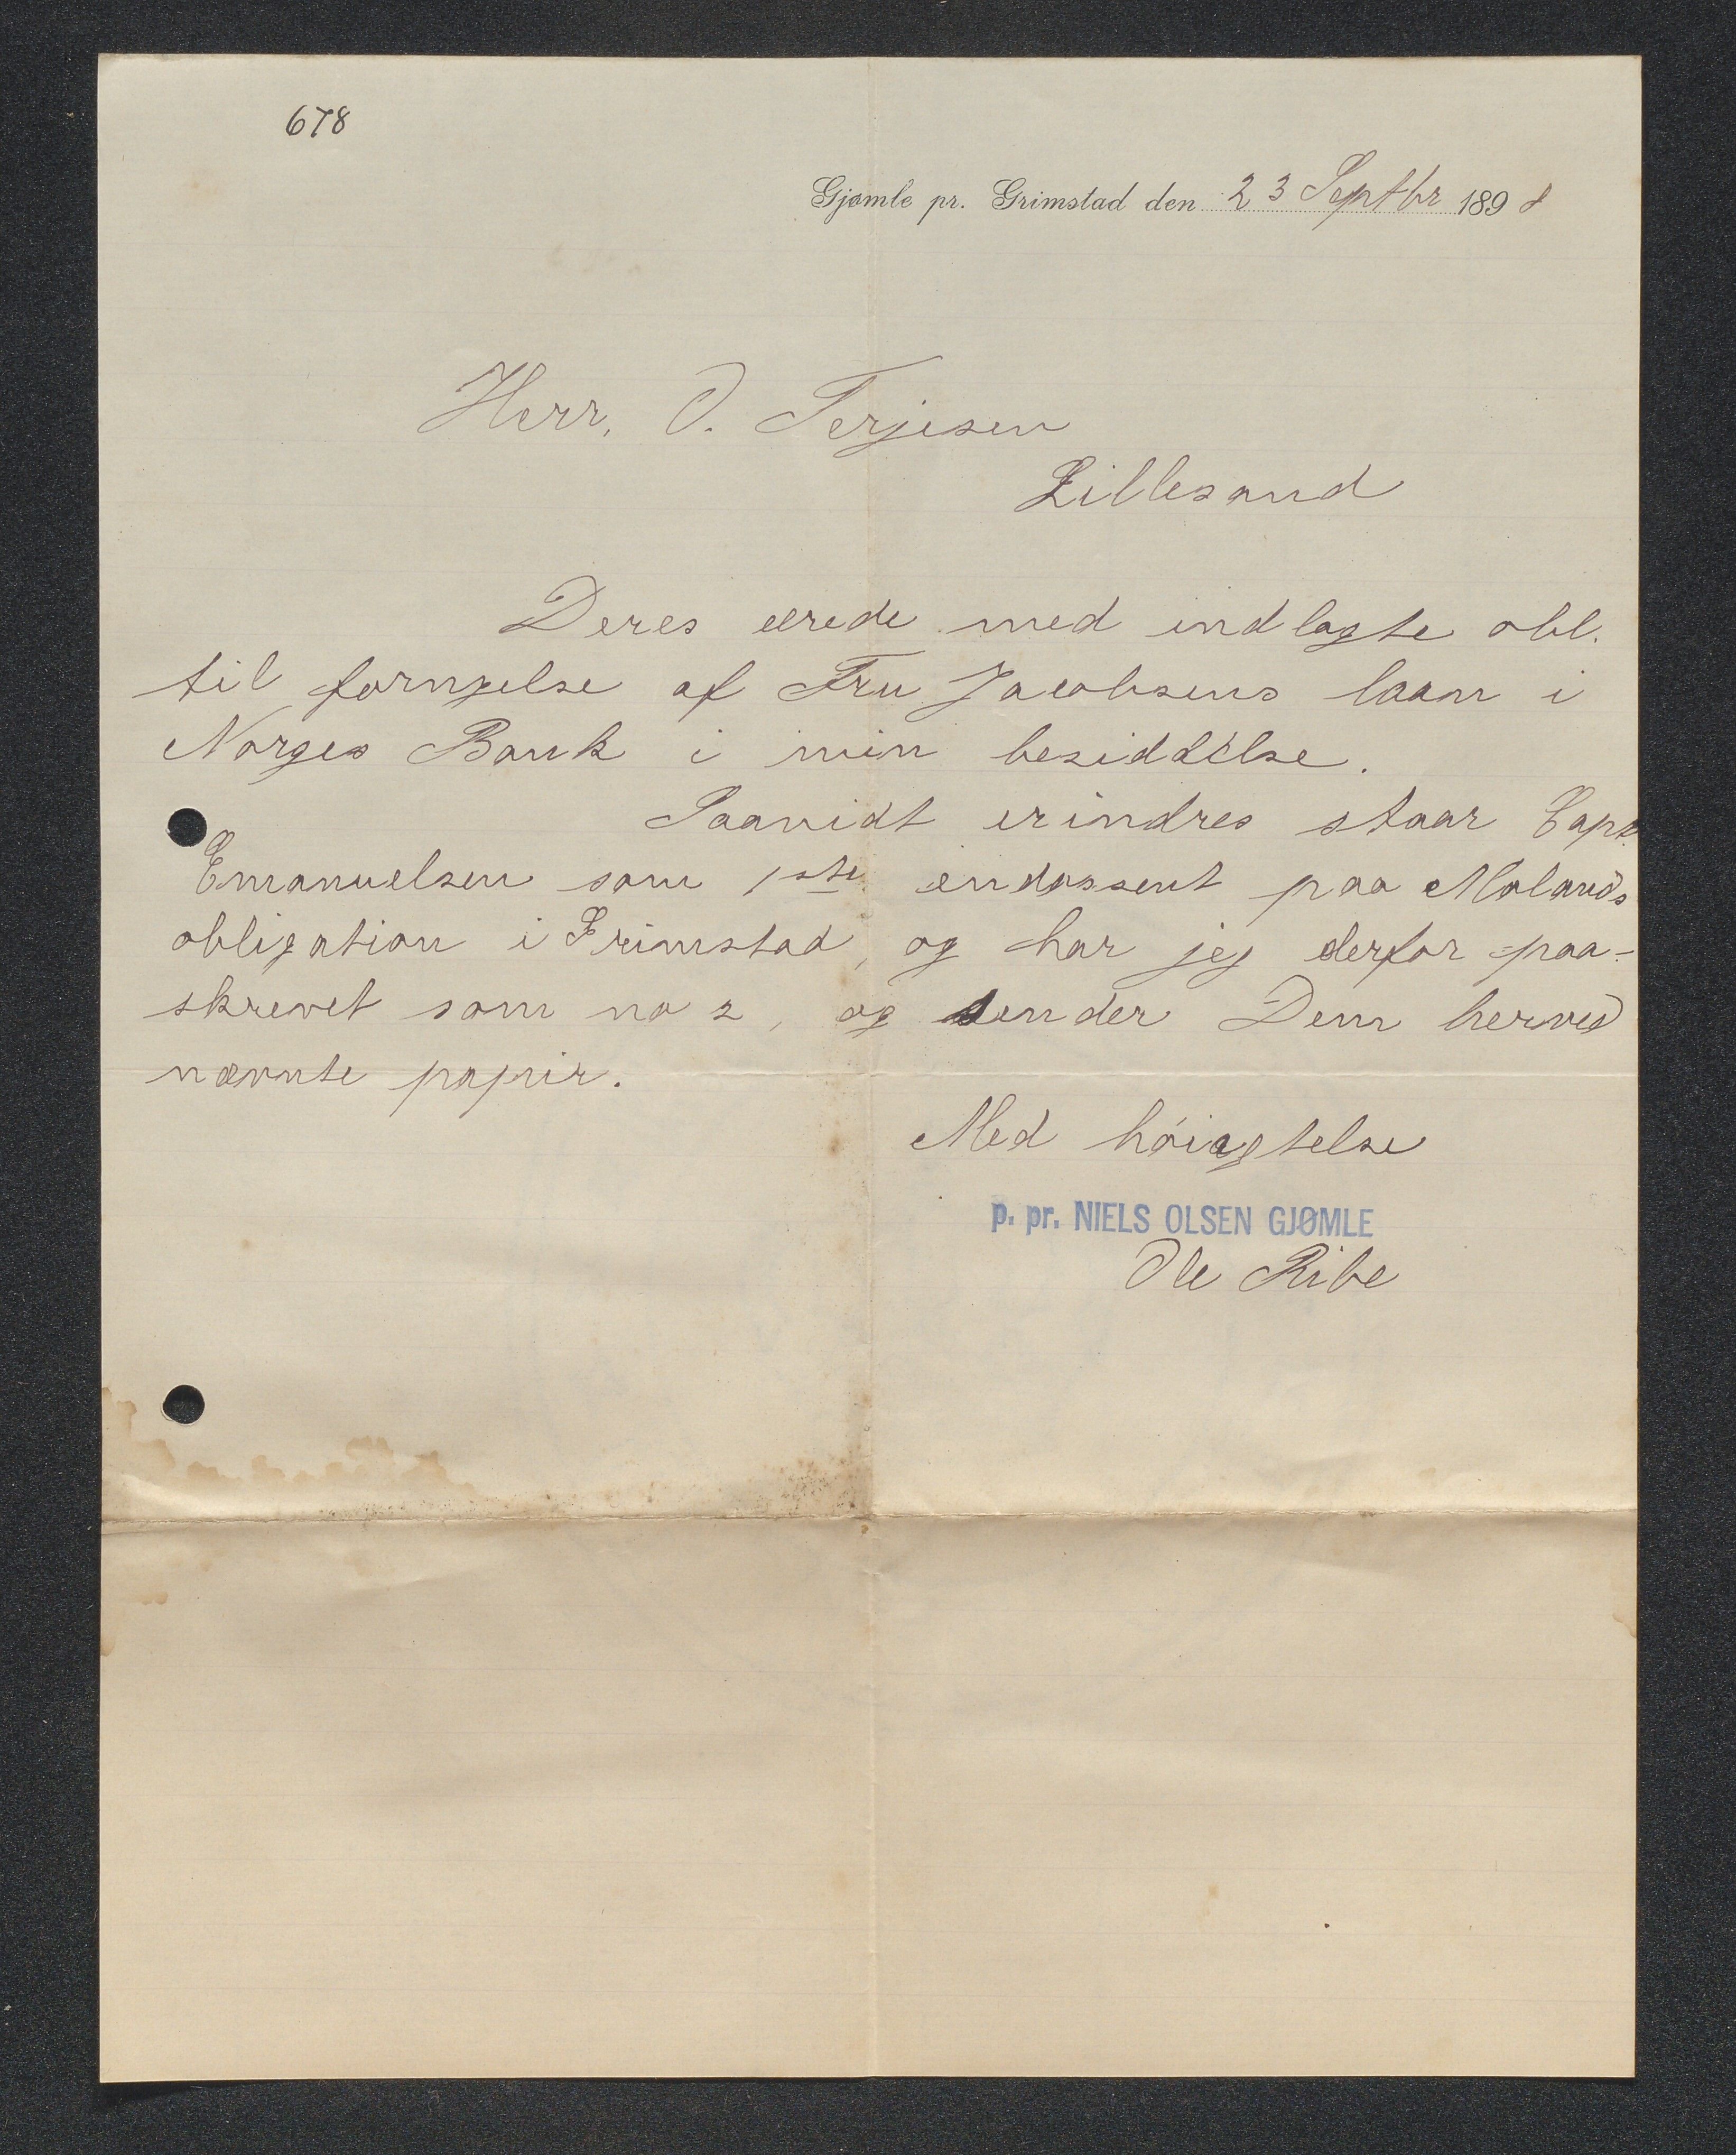 678
Gjømle pr. Grimstad den 23 Septbr 1898
Herr. O. Terjesen
Lillesand
Deres ærede med indlagte obl.
til fornyelse af Fru Jacobsens laan i
Norges Bank i min besiddelse.
Saavidt erindres staar Capt.
Emanuelsen som 1ste endossent paa Molands
obligation i Grimstad, og har jeg derfor paa-
skrevet som no 2, og sender Dem herved
nævnte papir.
Med høiagtelse
p. pr. NIELS OLSEN GJØMLE
Ole Ribe